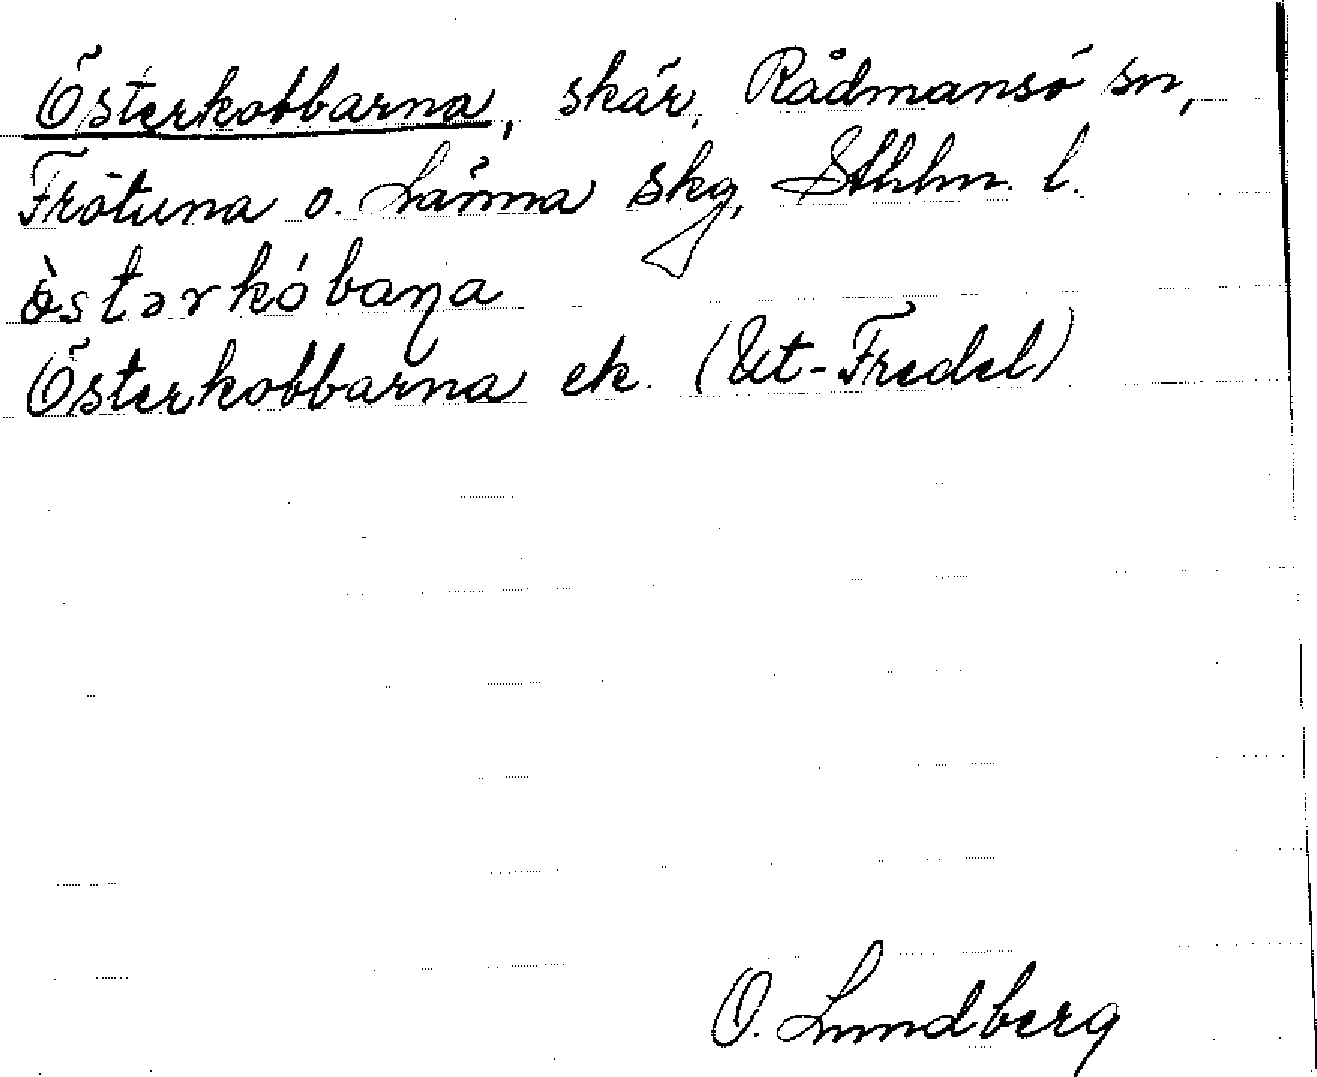 Österkobbarna, skär, Rådmansö sn,
Frötuna o. Länna skg, Sthlm. l.
ö̀stərkóbaɳa
Österkobbarna ek. (Ut-Fredel)
O. Lundberg